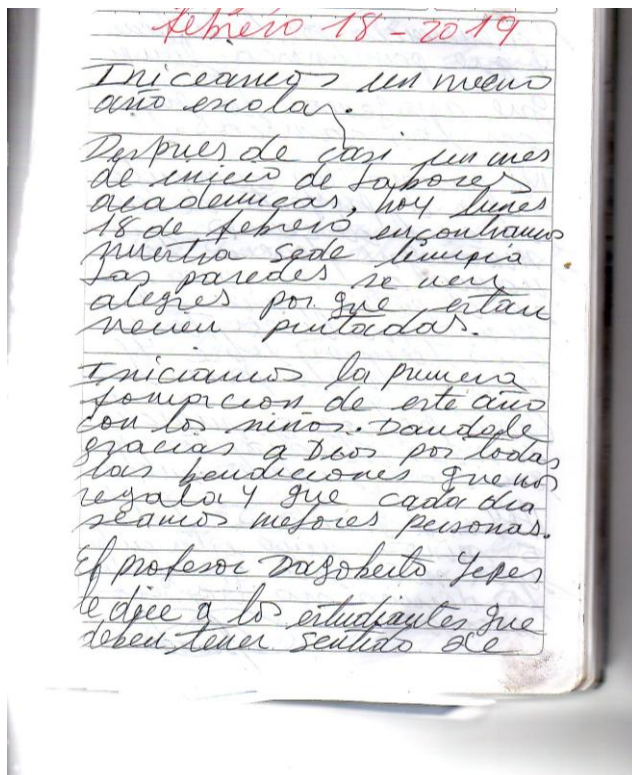 febrero 18-2019
Iniciamos un nuevo
año escolar.
Despues de casi un mes
de inicio de labores
academicas, hoy lunes
18 de febrero encontramos
nuestra sede limpia
las paredes se ven
alegres por que estan
recien pintadas.
Iniciamos la primera
formacion de este año
con los niños. Dandole
gracias a Dios por todas
las bendiciones que nos
regala y que cada dia
seamos mejores personas.
El profesor Dagoberto Yepes
le dice a los estudiantes que
deben tener sentido de